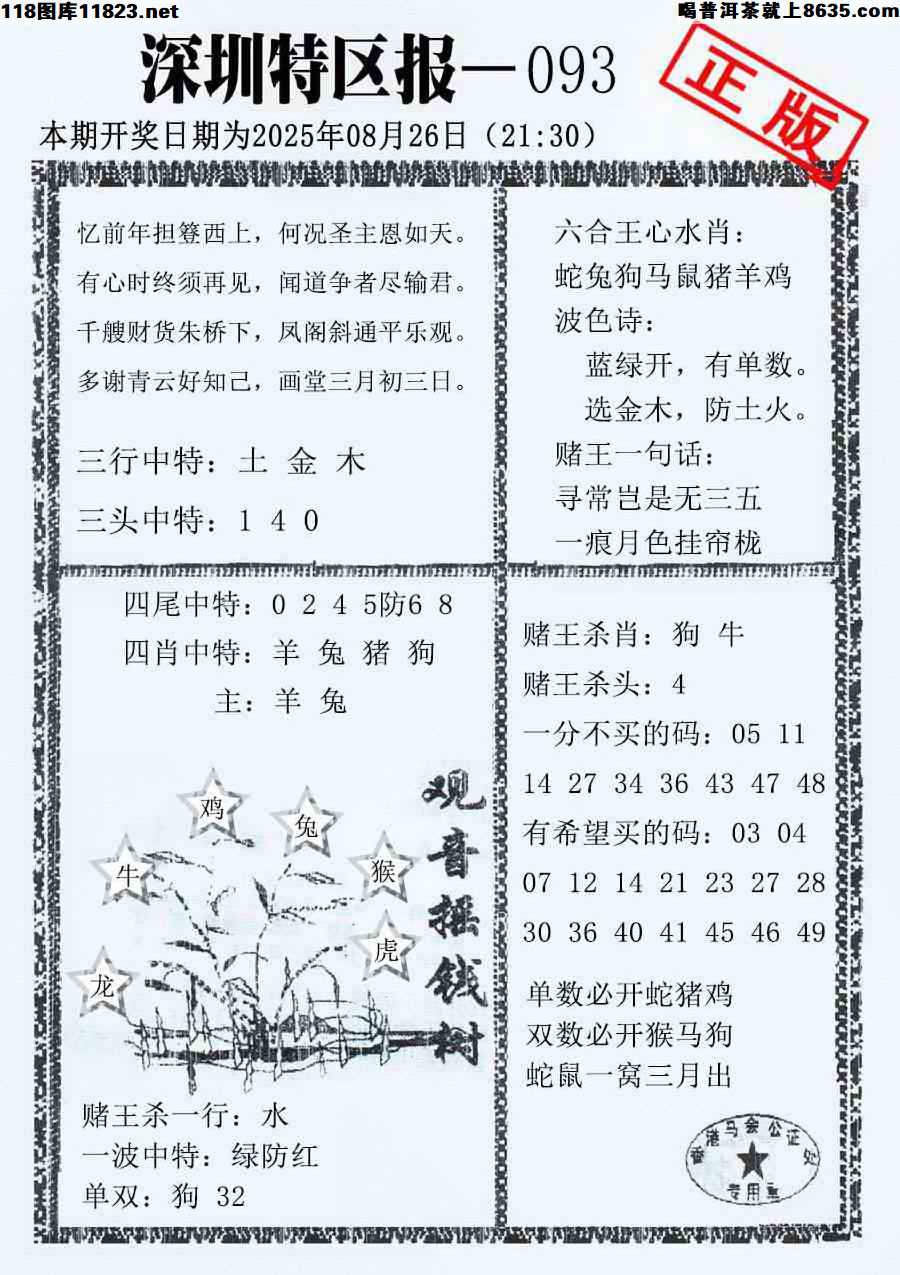 118图库11823.net
喝普洱茶就上8635.com
深圳特区报—093
正版
本期开奖日期为2025年08月26日（21:30）
忆前年担簦西上，何况圣主恩如天。
有心时终须再见，闻道争者尽输君。
千艘财货朱桥下，凤阁斜通平乐观。
多谢青云好知己，画堂三月初三日。
三行中特：土 金 木
三头中特：1 4 0
六合王心水肖：
蛇兔狗马鼠猪羊鸡
波色诗：
蓝绿开，有单数。
选金木，防土火。
赌王一句话：
寻常岂是无三五
一痕月色挂帘栊
四尾中特：0 2 4 5防6 8
四肖中特：羊 兔 猪 狗
主：羊 兔
鸡
兔
牛
猴
虎
龙
观音摇钱树
赌王杀一行：水
一波中特：绿防红
单双：狗 32
赌王杀肖：狗 牛
赌王杀头：4
一分不买的码：05 11
14 27 34 36 43 47 48
有希望买的码：03 04
07 12 14 21 23 27 28
30 36 40 41 45 46 49
单数必开蛇猪鸡
双数必开猴马狗
蛇鼠一窝三月出
香港马会公证处
专用章